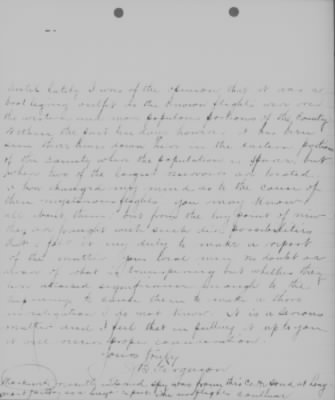 Until lately I was of the opinion that it was a
boot legging outfit as the known flights were over
the western and more populous portions of the County
Within the last ten days however it has been
seen three times down here in the eastern portion
of the County where the population is sparse, but
where two of the largest reservoirs are located
I have changed my mind as to the cause of
these mysterious flights. You may know
all about them. but from the lay point of view
they are fraught with such dire possibilities
that I felt it my duty to make a report
of the matter. Your local men no doubt are
aware of what is transpiring but whether they
have attached significance enough to the
happening to cause them to make a thoro
investigation I do not know. It is a serious
matter and I feel that in putting it up to you
it will receive proper consideration.
Yours truly
Ferguson
recently interned spy was from this Co.